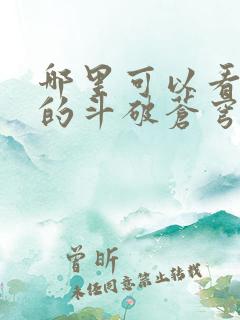 哪里可以看
的斗破苍穹
曾昕
未经同意禁止转载